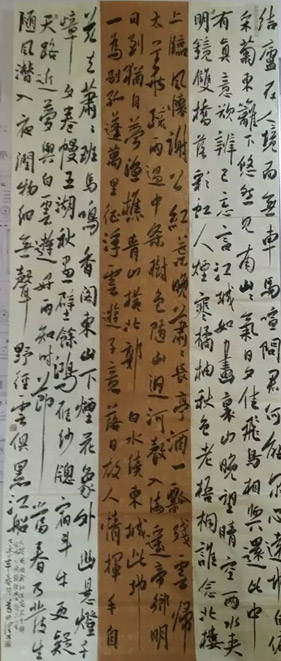 結廬在人境而無車馬喧問君何能尔心遠地自偏
采菊東籬下悠然見南山氣日夕佳飛鳥相與還此中
有真意欲辨已忘言江城如畫裏山晚望晴空兩水夾
明鏡雙橋落彩虹人煙寒橘柚秋色老梧桐誰念北樓
上臨風懷謝公紅葉晚蕭蕭長亭酒一瓢殘雲歸
太華疏雨過中條樹色隨山迥河聲入海遙帝鄉明
日到猶自夢漁樵青山橫北郭白水繞東城此地
一為別孤蓬萬里征浮雲遊子意落日故人情揮手自
茲去蕭蕭班馬鳴香閣東山下煙花象外幽懸燈千
嶂夕卷幔五湖秋畫壁餘鴻雁紗窗宿斗牛更疑
天路近夢與白雲遊好雨知時節當春乃發生
隨風潛入夜潤物細無聲野徑雲俱黑江船